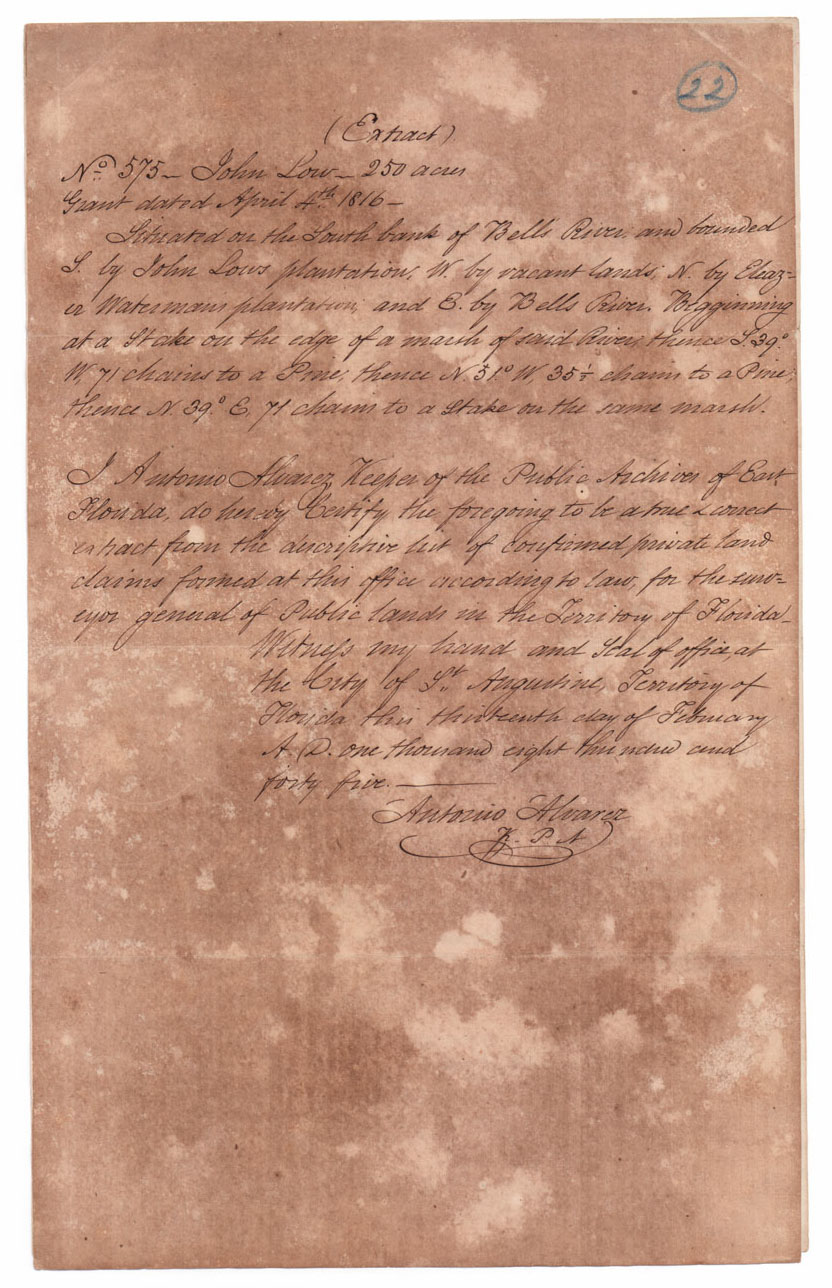 22
(Extract)
No. 575 — John Low — 250 acres
Grant dated April 4th 1816 —
Situated on the South bank of Bells River, and bounded
S. by John Lows plantation, W. by vacant lands, N. by Eleaz-
er Watermans plantation, and E. by Bells River. Begginning
at a Stake on the edge of a marsh of said River, thence S. 39.°
W, 71 chains to a Pine, thence N 51.° W, 35 1/2 chains to a Pine,
thence N. 39.° E, 71 chains to a Stake on the same marsh.
I Antonio Alvarez Keeper of the Public Archives of East
Florida, do hereby Certify the foregoing to be a true & correct
extract from the descriptive list of confirmed private land
claims formed at this office according to law, for the surv-
eyor general of Public lands in the Territory of Florida —
Witness my hand and Seal of office, at
the City of St. Augustine, Territory of
Florida this thirteenth day of February
A. D. one thousand eight hundred and
forty five. —
Antonio Alvarez
K. P. A